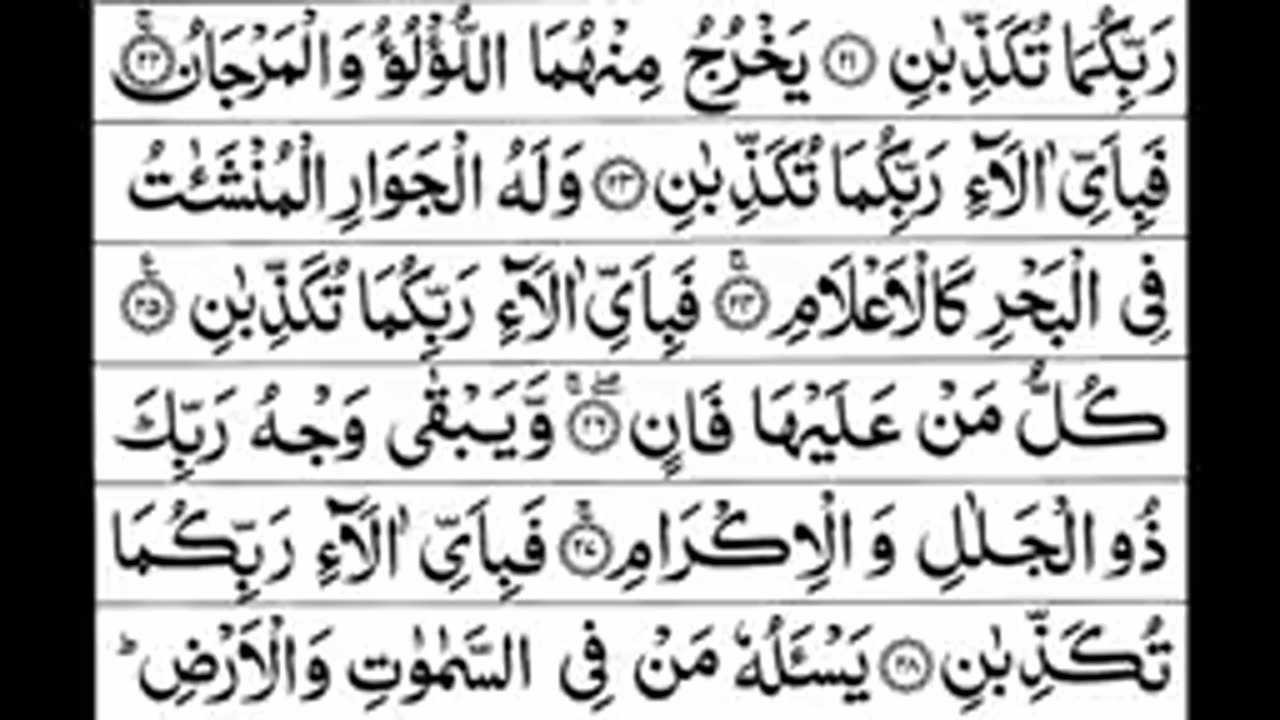 رَبِّكُمَا تُكَذِّبٰنِ ﴿۲۱﴾ يَخْرُجُ مِنْهُمَا اللُّؤْلُؤُ وَالْمَرْجَانُ ﴿۲۲﴾
فَبِاَىِّ اٰلَآءِ رَبِّكُمَا تُكَذِّبٰنِ ﴿۲۳﴾ وَلَهُ الْجَوَارِ الْمُنْشَـٰٔتُ
فِى الْبَحْرِ كَالْاَعْلَامِ ﴿۲۴﴾ فَبِاَىِّ اٰلَآءِ رَبِّكُمَا تُكَذِّبٰنِ ﴿۲۵﴾
كُلُّ مَنْ عَلَيْهَا فَانٍ ﴿۲۶﴾ وَّيَبْقٰى وَجْهُ رَبِّكَ
ذُو الْجَلٰلِ وَ الْاِكْرَامِ ﴿۲۷﴾ فَبِاَىِّ اٰلَآءِ رَبِّكُمَا
تُكَذِّبٰنِ ﴿۲۸﴾ يَسْـَٔلُهٗ مَنْ فِى السَّمٰوٰتِ وَالْاَرْضِ ؕ